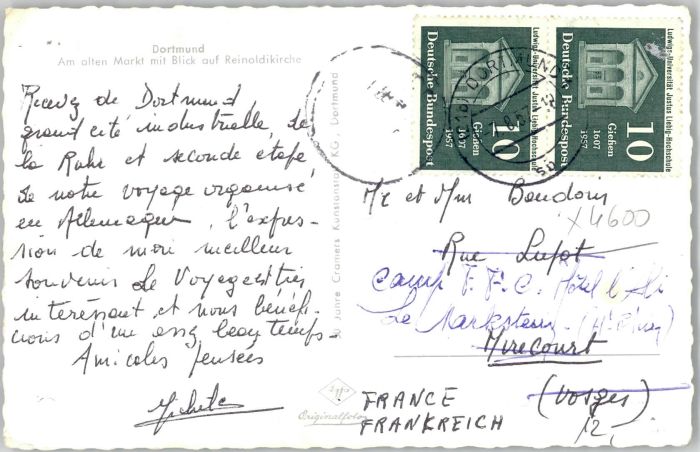 Dortmund
Am alten Markt mit Blick auf Reinoldikirche
Recevez de Dortmund
grand cité industrielle, de
la Ruhr et seconde etape
de notre voyage organisé
en Allemagne, l'expres-
sion de mon meilleur
souvenir. Le Voyage est très
intéressant et nous bénéfi-
cions d'un assez beau temps.
Amicales pensées
Michel
50 Jahre Cramers Kunstanstalt KG, Dortmund
Originalfoto
Deutsche Bundespost
Gießen
1607
1957
10
Ludwigs-Universität Justus Liebig-Hochschule
Deutsche Bundespost
Gießen
1607
1957
10
Ludwigs-Universität Justus Liebig-Hochschule
DORTMUND
Mr et Mm Boudour
X 4600
Rue Lufot
Camp F.F.C. Hôtel l'Ali
Le Markstein (Ht Rhin)
Mirecourt
(Vosges)
FRANCE
FRANKREICH
12,